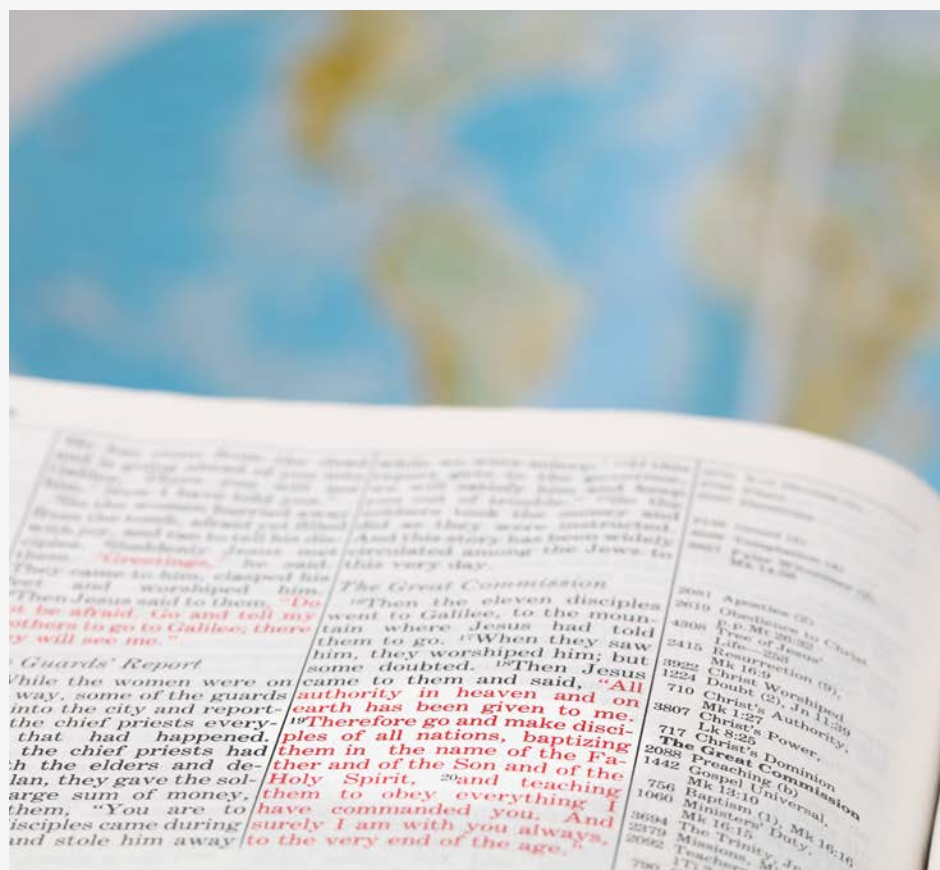 and is going ahead of you into
Galilee. There you will see
him.' Now I have told you."
So the women hurried away
from the tomb, afraid yet filled
with joy, and ran to tell his dis-
ciples. Suddenly Jesus met
them. "Greetings," he said.
They came to him, clasped his
feet and worshiped him.
Then Jesus said to them, "Do
t be afraid. Go and tell my
others to go to Galilee; there
ey will see me."
Guards' Report
While the women were on
way, some of the guards
into the city and report-
the chief priests every-
that had happened.
the chief priests had
h the elders and de-
lan, they gave the sol-
arge sum of money,
them, "You are to
isciples came during
and stole him away
did as they were instructed.
And this story has been widely
circulated among the Jews to
this very day.
The Great Commission
16Then the eleven disciples
went to Galilee, to the moun-
tain where Jesus had told
them to go. 17When they saw
him, they worshiped him; but
some doubted. 18Then Jesus
came to them and said, "All
authority in heaven and on
earth has been given to me.
19Therefore go and make disci-
ples of all nations, baptizing
them in the name of the Fa-
ther and of the Son and of the
Holy Spirit, 20and teaching
them to obey everything I
have commanded you. And
surely I am with you always,
to the very end of the age."
2081 Apostles (2)
2619 Obedience to Christ
p.p. Mt 26:32
4308 Tree of Jesus'
Life—258
2415 Resurrection (9),
Mk 16:9
3922 Christ Worshiped
1224 Doubt (2), Jn 11:39
710 Christ's Authority,
Mk 1:27
3807 Christ's Power,
Lk 8:25
717 Christ's Dominion
The Great Commission
2088 Preaching (b)
1442 Gospel Universal,
Mk 13:10
756 Baptism (1), Mk 16:16
1060 Ministers' Duty,
Mk 16:15
3694 The Trinity, Jn
2379 Missions,
2092 Teachers
790